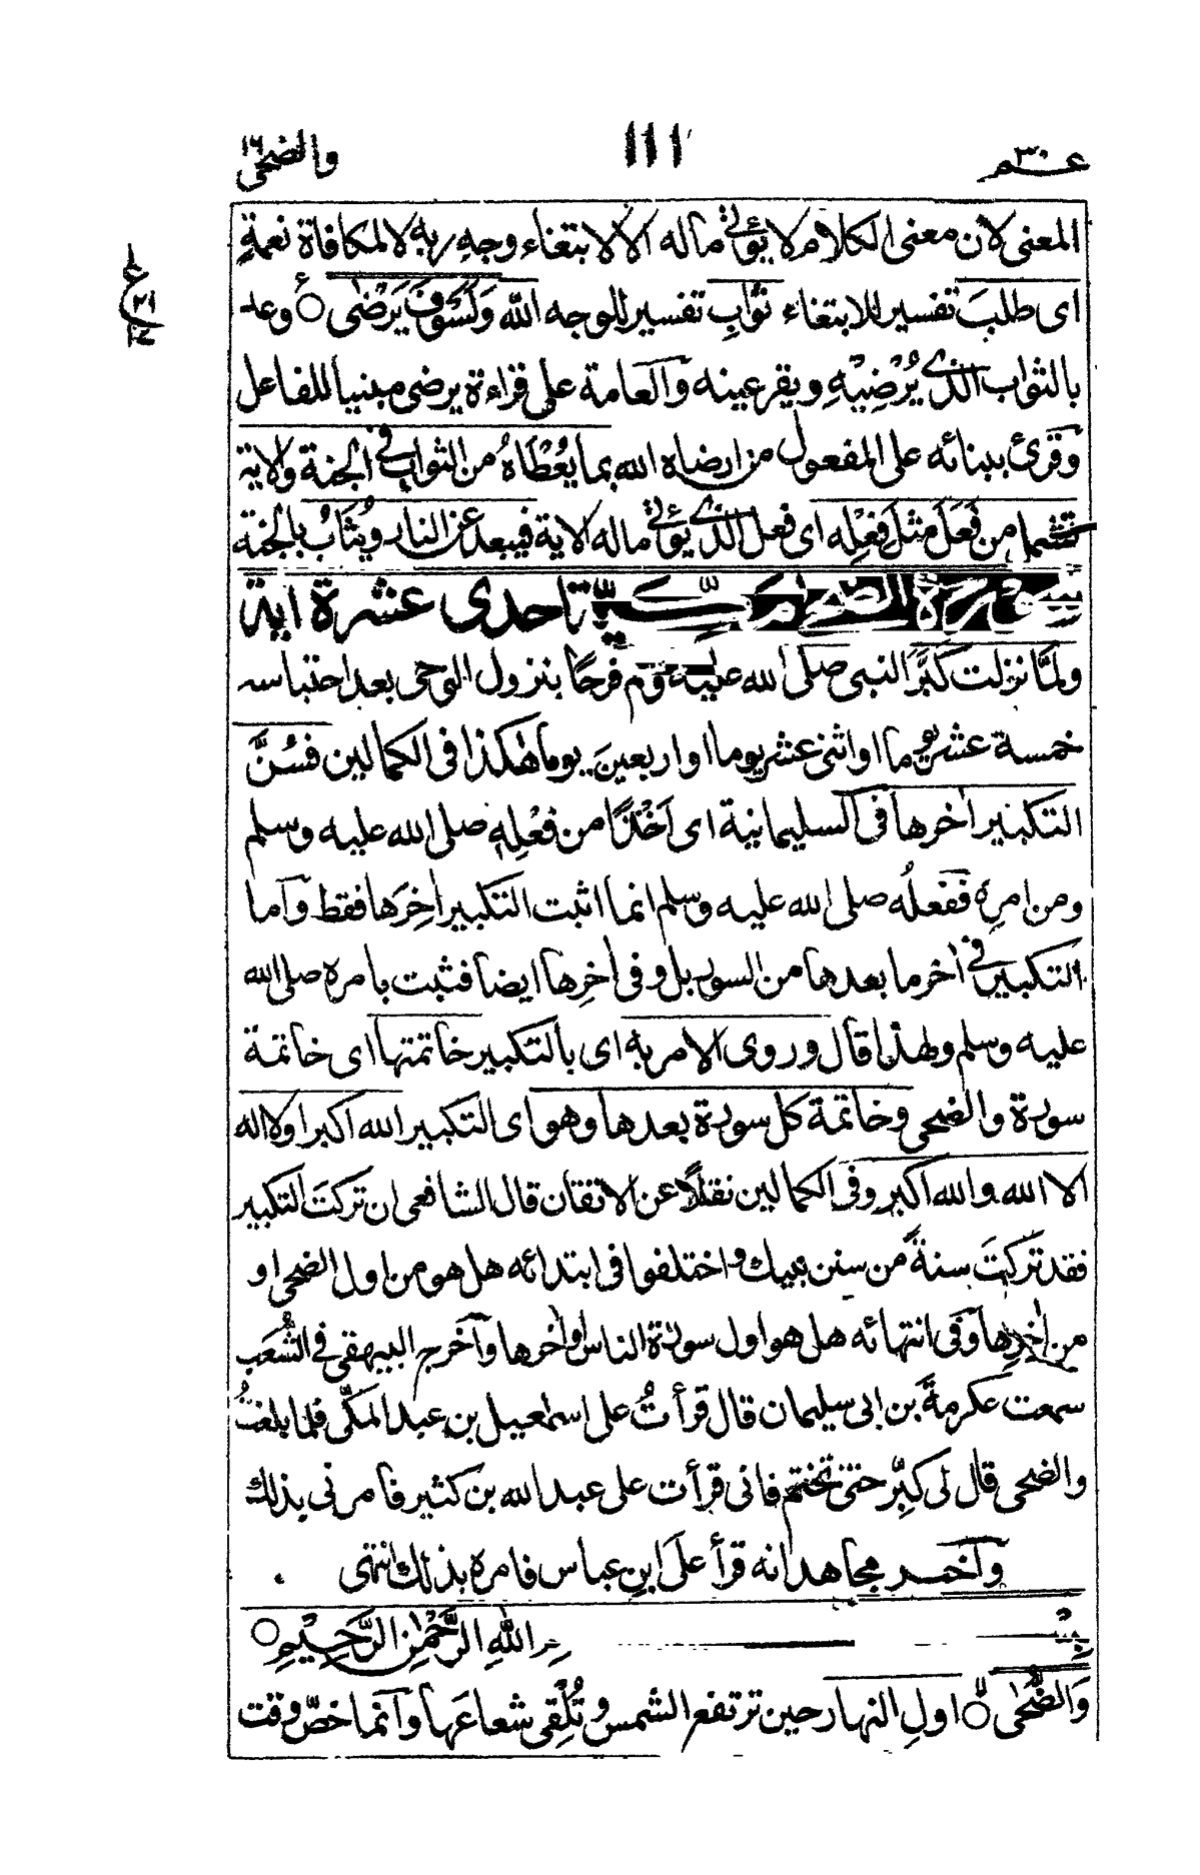 عم ٣٠
١١١
والضحى
المعنى لان معنى الكلام لا يؤتى ماله الا لابتغاء وجه ربه لا لمكافاة نعمةٍ
اى طلبَ تفسير للابتغاء ثوابِ تفسير للوجه الله وَلَسَوْفَ يَرْضٰى ○ وعد
بالثواب الذى يُرْضِيْهِ ويقر عينه والعامة على قراءة يرضى مبنيا للفاعل
وقرئ ببنائه على المفعول من ارضاه الله بما يُعْطَاهُ من الثواب فى الجنة والاية
تشمل من فَعَلَ مثلَ فِعْلِه اى فعل الذى يؤتى ماله الاية فيبعد عن النار ويُثَابُ بالجنة
سورة الضحى مكيّة احدى عشرة اية
ولمّا نزلت كبَّر النبى صلى الله عليه وم فرحًا بنزول الوحى بعد احتباسه
خمسة عشر يوما او اثنى عشر يوما او اربعينَ يوما هٰكذا فى الكمالين فسُنَّ
التكبير اٰخرها فى السليمانية اى اَخْذًا من فِعْلِه صلى الله عليه وسلم
ومن امرِه ففعلُه صلى الله عليه وسلم انما اثبت التكبير اٰخِرَها فقط واَما
التكبير فى اٰخر ما بعدها من السور بل وفى اٰخِرِها ايضا فثبت بامره صلى الله
عليه وسلم ولهذا قال وروى الامر به اى بالتكبير خاتمتها اى خاتمة
سورة والضحى وخاتمة كل سورة بعدها وهو اى التكبير الله اكبر او لا اله
الا الله والله اكبر وفى الكمالين نقلًا عن الاتقان قال الشافعى ان تركتَ التكبير
فقد تركتَ سنةً من سنن نبيك واختلفوا فى ابتدائه هل هو من اول الضحى او
من اٰخِرِها وفى انتهائه هل هو اول سورة الناس او اٰخرها واَخرج البيهقى فى الشُّعَب
سمعت عكرمةَ بن ابى سليمان قال قرأتُ على اسمٰعيل بن عبد المكّى فلما بلغتُ
والضحى قال لى كبِّر حتى تختم فانى قرأت على عبد الله بن كثير فامرنى بذلك
واَخبر مجاهد انه قرأ على ابنِ عباس فامره بذلك انتهى
بسم الله الرَّحْمٰنِ الرَّحِيْمِ ○
وَالضُّحٰى ○ اولِ النهار حين ترتفع الشمس وتُلْقِى شعاعَها واَنما خصّ وقت